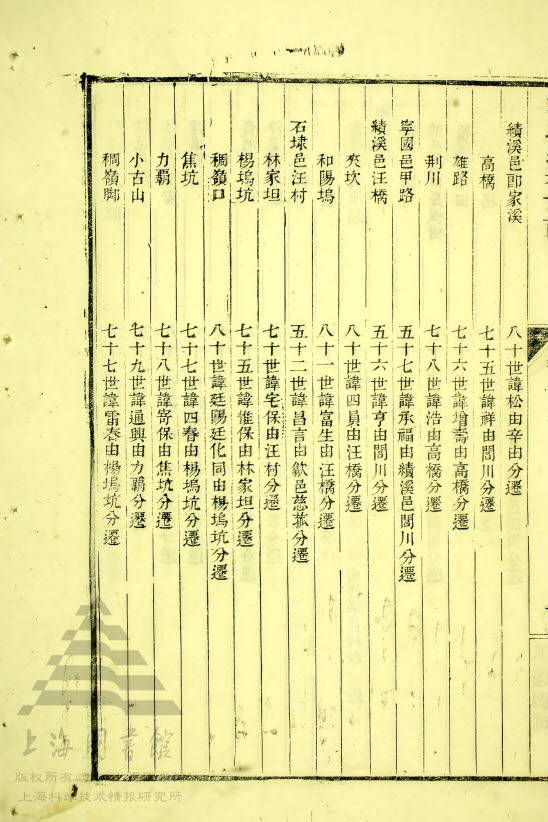 績溪邑郎家溪 八十世諱松由辛由分遷
高橋 七十五世諱祥由閭川分遷
雄路 七十六世諱增壽由高橋分遷
荆川 七十八世諱浩由高橋分遷
寧國邑甲路 五十七世諱承福由績溪邑閭川分遷
績溪邑汪橋 五十六世諱亨由閭川分遷
夾坎 八十世諱四員由汪橋分遷
和陽塢 八十一世諱富生由汪橋分遷
石埭邑汪村 五十二世諱昌言由歙邑慈菰分遷
林家坦 七十世諱宅保由汪村分遷
楊塢坑 七十五世諱惟保由林家坦分遷
稠嶺口 八十世諱廷陽廷化同由楊塢坑分遷
焦坑 七十七世諱四春由楊塢坑分遷
力覇 七十八世諱寄保由焦坑分遷
小古山 七十九世諱通興由力覇分遷
稠嶺脚 七十七世諱雷春由楊塢坑分遷
上海图書館
版权所有
上海科学技术情报研究所